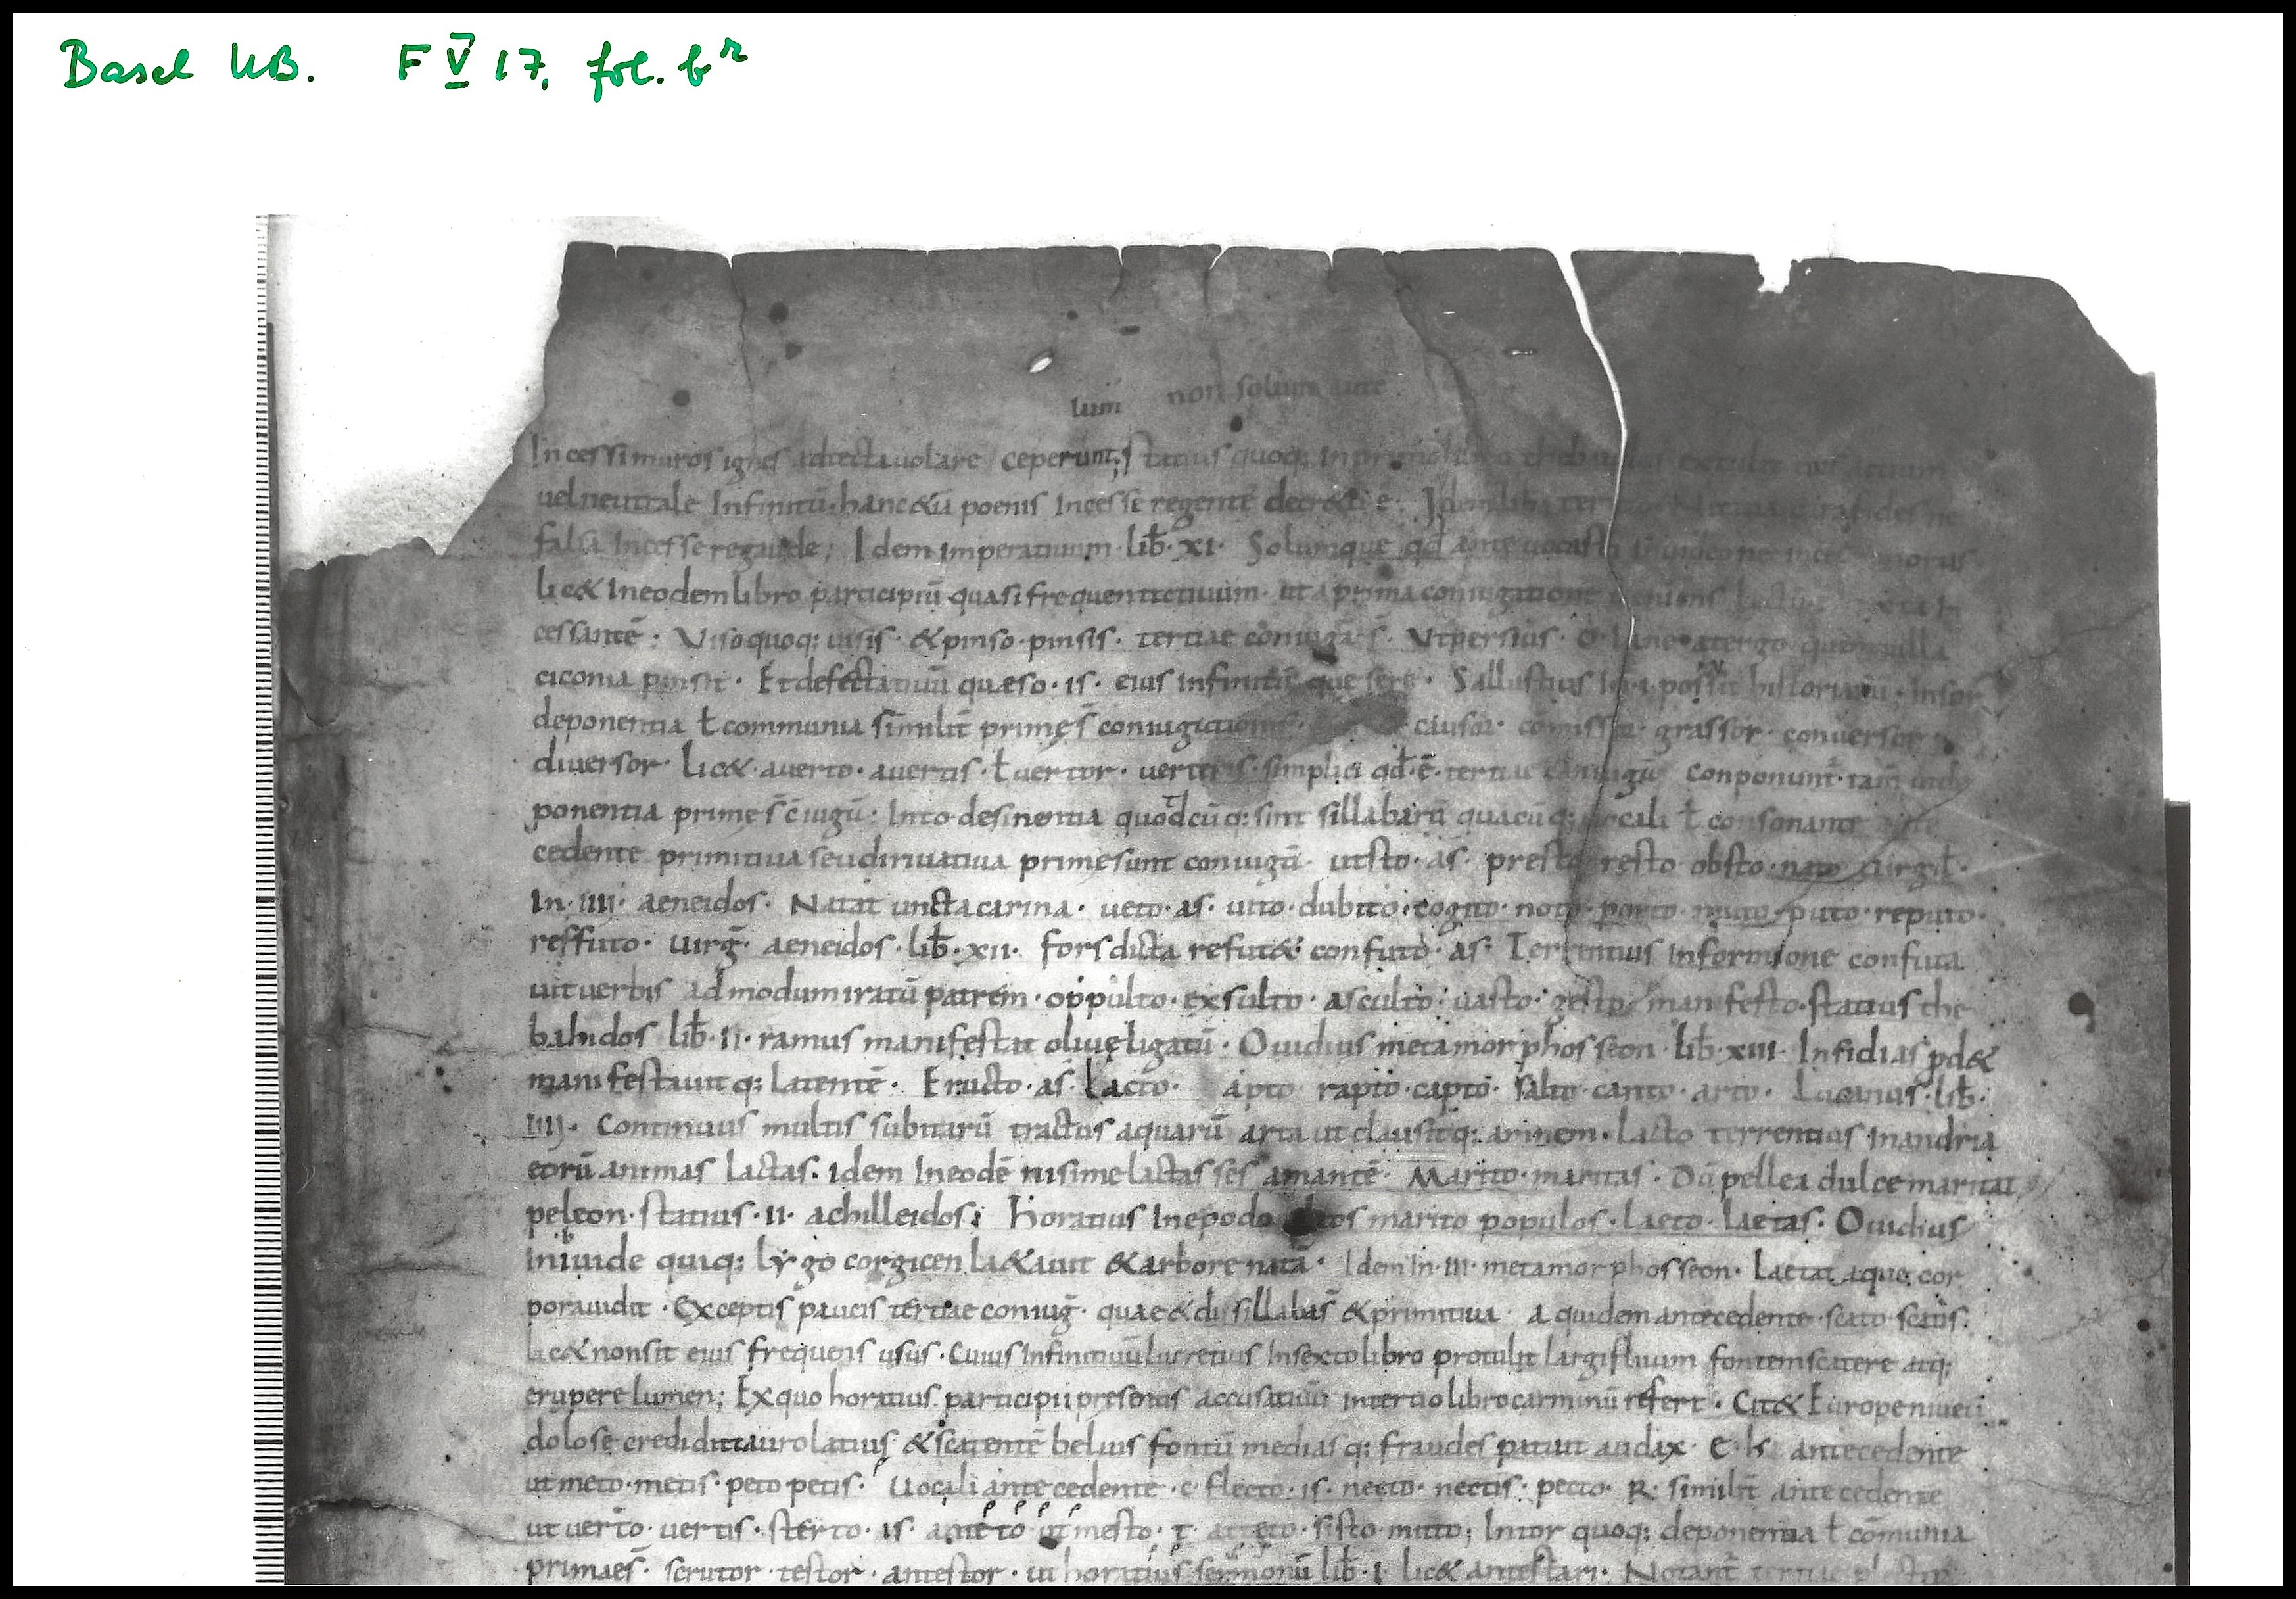 Basel UB. F V 17, fol. b r
lum non solum ante
Incessi muros ignes adtecta uolare ceperunt; Statius quoq: In primo
uel neutrale Infinitū· hanc &iā poenis Incesse regentē decr&ū ē· Idem lib·
falsa Incesse regaude; Idem imperatiuum· lib̄· XI· Solumque qđ ante uocasti
lic& In eodem libro participiū quasi frequentatiuum· ut a prima coniugatione
cessantē: Viso quoq: uisis· & pinso· pinsis· tertiae coniuga s̄· Vt persius· O· Iane· a tergo quem nulla
ciconia pinsit· Et defectatiuū quæso· is· eius infinitū que sere· Sallustius historiarū· Insor
deponentia ł communia similit̄ primę s̄ coniugationis· comissor· grassor· conuersor
diuersor· lic& auerto· auertis· ł uertor· uerteris· simplici qđ· ē· tertiae coniugū conponunt̄· tam̄
ponentia primę s̄ c̄iugū· Into desinentia quodcūq: sint sillabarū quacūq: uocali ł consonante
cedente primitiua seu diriuatiua prime sunt coniugū· ut sto· as· presto resto obsto· nato uirgił·
In· IIII· aeneidos· Natat uncta carina· ueto· as· uito· dubito· cogito· noto· porto· muto· puto· reputo·
reffuto· uirḡ· aeneidos· lib̄· XII· fors dicta refut&· confuto· as· Terrentius In formione confuta
uit uerbis admodum iratū patrem· oppulto· exsulto· asculto· uasto· gesto manifesto· statius the
bahidos lib̄· II· ramus manifestat oliuę ligatū· Ouidius metamorphosseon· lib̄· XIII· Insidias pd&
manifestauit q: latentē· Eructo· as· lacto· apto rapto· capto· salto· canto· arto· Lucanus· lib̄·
IIII· Continuus multis subitarū tractus aquarū artaut clausitq: amnem· lacto terrentius In andria
eorū animas lactas· Idem In eodē nisi me lactas ses amantē· Marito· maritas· Dū pellea dulce maritat
peleon· statius· II· achilleidos; Horatius In epodo altos marito populos· Laeto· laetas· Ouidius
in ibiuide quiq: lyrgo corgicen la&auit & arbore natā· Idem In· III· metamorphosseon· Laetat aque cor
porauidit· Exceptis paucis tertiae coniug̅· quae & disillabas̄ & primitiua a quidem antecedente· scato scatis·
lic& non sit eius frequens usus· Cuius Infinitiuū lucretius In sexto libro protulit largifluum fontem scatere atq:
erupere lumen; Ex quo horatius participii presentis accusatiuū in tertio libro carminū refert· Cit& Europe niueū
dolose credidit tauro latius & scatentē beluis fontū mediasq: fraudes patuit audax· antecedente
ut meto· metis· peto petis· Uocali antecedente· c flecto· is· necto· nectis· pecto· R· similit̄ antecedente
ut uerto· uertis· sterto· is· sisto· mitto; In tor quoq: deponentia ł cōmunia
primae s̄· scrutor testor· antestor· ut horatius sermonū lib̄· I· lic& antestari· Notant̄ tertiae